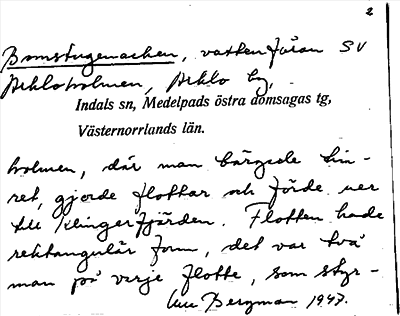 2
Bomstugenacken, vattenfåran SV
Äkloholmen, Äklo by,
Indals sn, Medelpads östra domsagas tg,
Västernorrlands län.
holmen, där man bärgade tim-
ret, gjorde flottar och förde ner
till Klingerfjärden. Flotten hade
rektangulär form, det var två
man på varje flotte, som styr-
Bergman 1947.